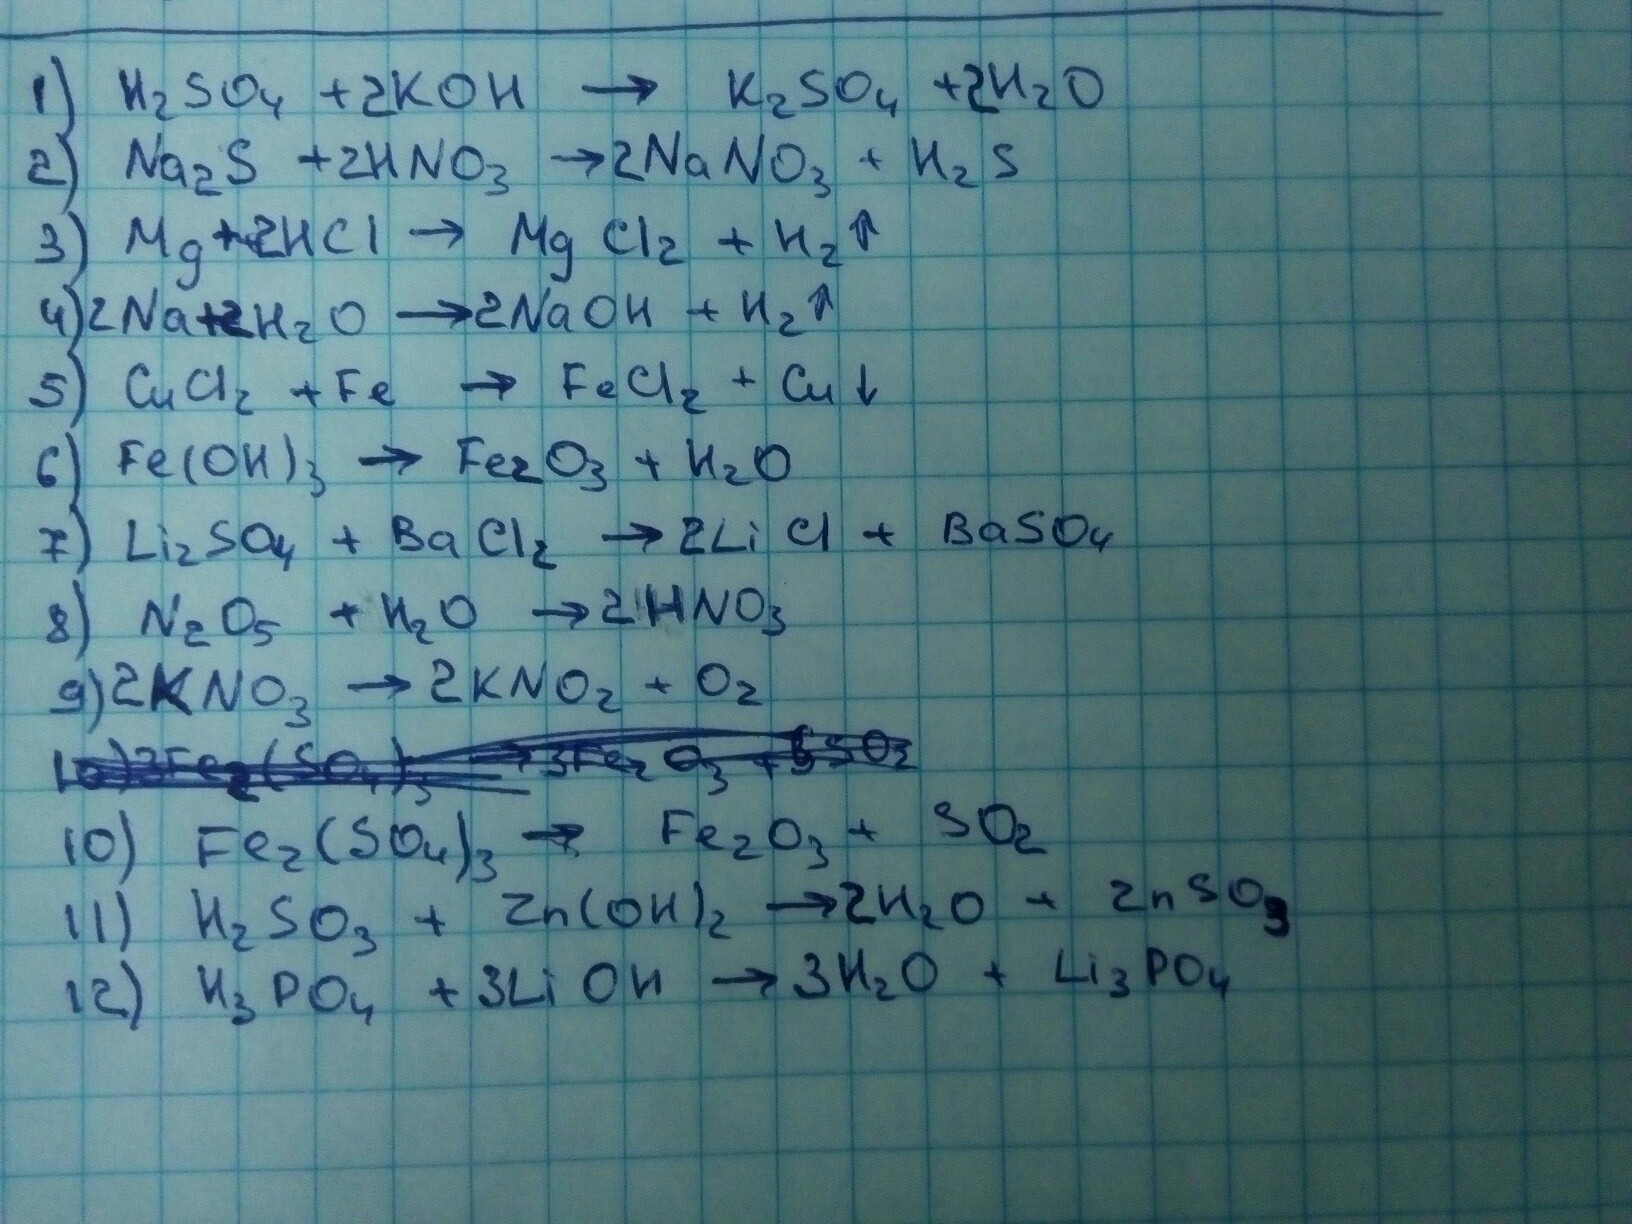 1) H₂SO₄ +2KOH → K₂SO₄ +2H₂O
2) Na₂S +2HNO₃ →2NaNO₃ + H₂S
3) Mg+2HCl → MgCl₂ + H₂↑
4)2Na+2H₂O →2NaOH + H₂↑
5) CuCl₂ +Fe → FeCl₂ + Cu↓
6) Fe(OH)₃ → Fe₂O₃ + H₂O
7) Li₂SO₄ + BaCl₂ →2LiCl + BaSO₄
8) N₂O₅ + H₂O →2HNO₃
9)2KNO₃ → 2KNO₂ + O₂
10) Fe₂(SO₄)₃ → Fe₂O₃ + SO₂
11) H₂SO₃ + Zn(OH)₂ →2H₂O + ZnSO₃
12) H₃PO₄ +3LiOH →3H₂O + Li₃PO₄